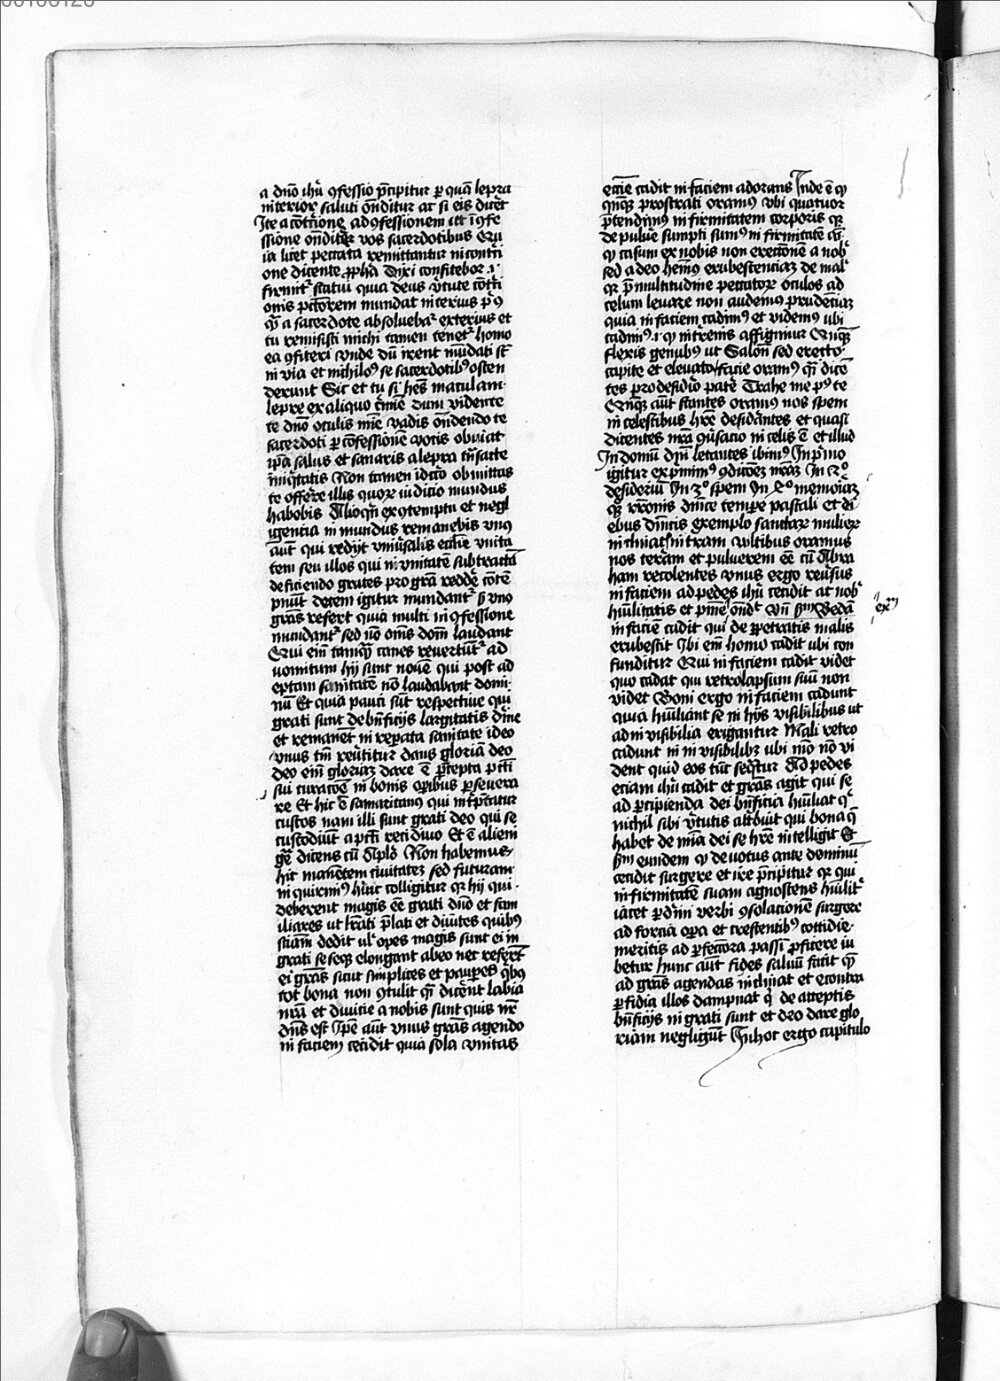 a dño ihũ ꝯfessio p̃cipitur ꝑ quã lepra
interior saluti onditur ac si eis dicet
Ite a cõtricione ad ꝯfessionem ut ĩ ꝯfe
ssione ondit͛ vos sacerdotibus Qui
ia licet peccata remittantur in contri
one dicente ꝓpha Dixi confitebor .i.
firmit͛ statui quia deus v̾tute cõtri
onis pctorem mundat interius pꝰ
a sacerdote absoluebat͛ exterius et
tu remisisti michi tamen tenet͛ homo
ea ꝯfiteri vnde dũ irent mũdati st̃
in via et nichilo se sacerdotibꝰ osten
derunt Sic et tu si hẽs maculam
lepre ex aliquo dum vidente
te dño oculis mie vadis õndendo te
sacerdoti ꝑ cõfessionẽ votis obuiat
ipa salus et sanaris a lepra
iniq̃tatis Non tamen idcirco obmittas
te offere illis quoꝝ iudicio mundus
habebis Alioqñ ex ꝯtemptu et negl
igencia in mundus remanebis vnꝰ
aut qui redijt vniũsalis ecclie vnita
tem seu illos qui in vnitatem
deficiendo grates pro grã redde
decem igitur mundant͛ vno
grãs refert quia multi in ꝯfessione
mundant͛ sed nõ oms dom laudant
Qui eim tamq̃ canes reuertũt͛ ad
vomitum hij sunt nouẽ qui post ad
eptam sanitatẽ nõ laudabant domi
nũ Et quia pauci sũt respectiue qui
grati sunt de bñficijs largitatis diñe
et remanet in sanitate ideo
vnus tm̃ reũtitur dans gloriã deo
deo eim gloriaꝫ dare ẽ p̃cepta pcti
sui in bonis opibus ꝑseuera
re Et hic ẽ samaritanꝰ qui intp̃tatur
custos nam illi sunt grati deo qui se
custodiũt a pcti recidiuo Et ẽ alieni
gẽ dicens cũ Non habemus
hic manẽtem ciuitateꝫ sed futuram
inquirimꝰ colligitur qꝛ hij qui
deberent magis eẽ grati dño et fam
iliares ut p̃lati et diuites quibꝰ
dedit uł opes magis sunt ei in
grati elongant ab eo nec refer̃t
ei grãs sicut simplices et pauꝑes qͥbꝰ
tot bona non ꝯtulit dicẽt labia
nrã et diuicie a nobis sunt quis nr̃
dñs est Ipẽ aũt vnus grãs agendo
in faciem cecidit quia sola vnitas
ecclie cadit in faciem adorans Inde ẽ
prostrati oramꝰ vbi quatuor
p̃tendimꝰ infirmitatem corporis qꝛ
de puluẽ sumpti sumꝰ infirmitatẽ
casum ex nobis non erectionẽ a nob
sed a deo hẽmꝰ erubescenciaꝫ de mal
qꝛ p̃ multitudine peccatoꝝ oculos ad
celum leuare non audemꝰ prudenciaꝫ
quia in faciem cadimꝰ et videmꝰ ubi
cadimꝰ affigimur
flexis genubꝰ ut Salon̄ sed erecto
capite et eleuata facie oramꝰ dicẽ
tes pro desiderio patẽ Trahe me pꝰ te
aũt stantes oramꝰ nos spem
in celestibus hrẽ desidãntes et quasi
dicentes nrã ꝯũsacio in celis ẽ et illud
In domũ dñi letantes ibimꝰ In pͥmo
igitur exp̃mimꝰ ꝯdicõeꝫ nrãꝫ In 2º
desideriũ In 3º spem In 4º memoriaꝫ
dñice tempe pascali et di
ebus dñicis exemplo sanctaꝝ mulieꝝ
in terram vultibus oramus
nos terãm et puluerem eẽ cũ Abra
ham recolentes vnus ergo reũsus
in faciem ad pedes ihũ cecidit ac nob
hũilitatis et pnĩe ond̾t Bedã
in faciẽ cadit qui de ꝑpetratis malis
erubescit Ibi em̃ homo cadit ubi con
funditur Qui in faciem cadit videt
quo cadat qui retrolapsum suũ non
videt Boni ergo in faciem cadunt
quia hũiliant se in hijs visibilibus ut
ad inuisibilia erigantur Mali retro
cadunt in inuisibilibꝫ ubi mõ nõ vi
dent quid eos tũc seqͥtur Ad pedes
eciam ihũ cadit et grãs agit qui se
ad ꝑcipienda dei bñficia hũiliat qꝛ
nichil sibi v̾tutis attribuit qui bona q̃
habet de mĩa dei se hrẽ intelligit Et
eundem deuotus ante dominũ
cecidit surgere et ire p̃cipitur qꝛ qui
infirmitatẽ suam agnoscens hũilit͛
iacet ꝑ diũi verbi ꝯsolacionẽ surgere
ad forcia oꝑa et crescentibꝰ cottidie
meritis ad ꝑfectiora passim ꝓficere iu
betur hunc aũt fides saluũ facit
ad grãs agendas inclinat et econtra
ꝑfidia illos dampnat de acceptis
bñficijs ingrati sunt et deo dare glo
riam negligũt In hoc ergo capitulo